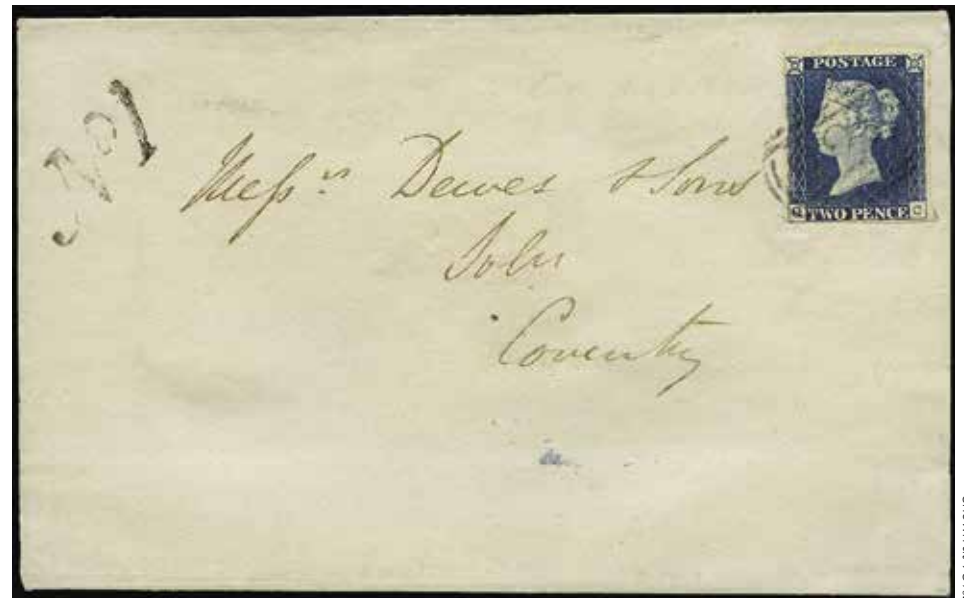 No 1
POSTAGE
TWO PENCE
Messrs Dewes & Sons
Solrs
Coventry